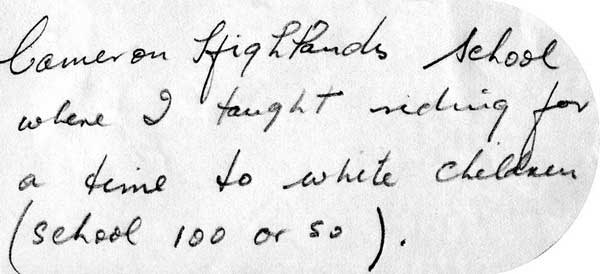 Cameron Highlands School
where I taught riding for
a time to white children
(school 100 or so).